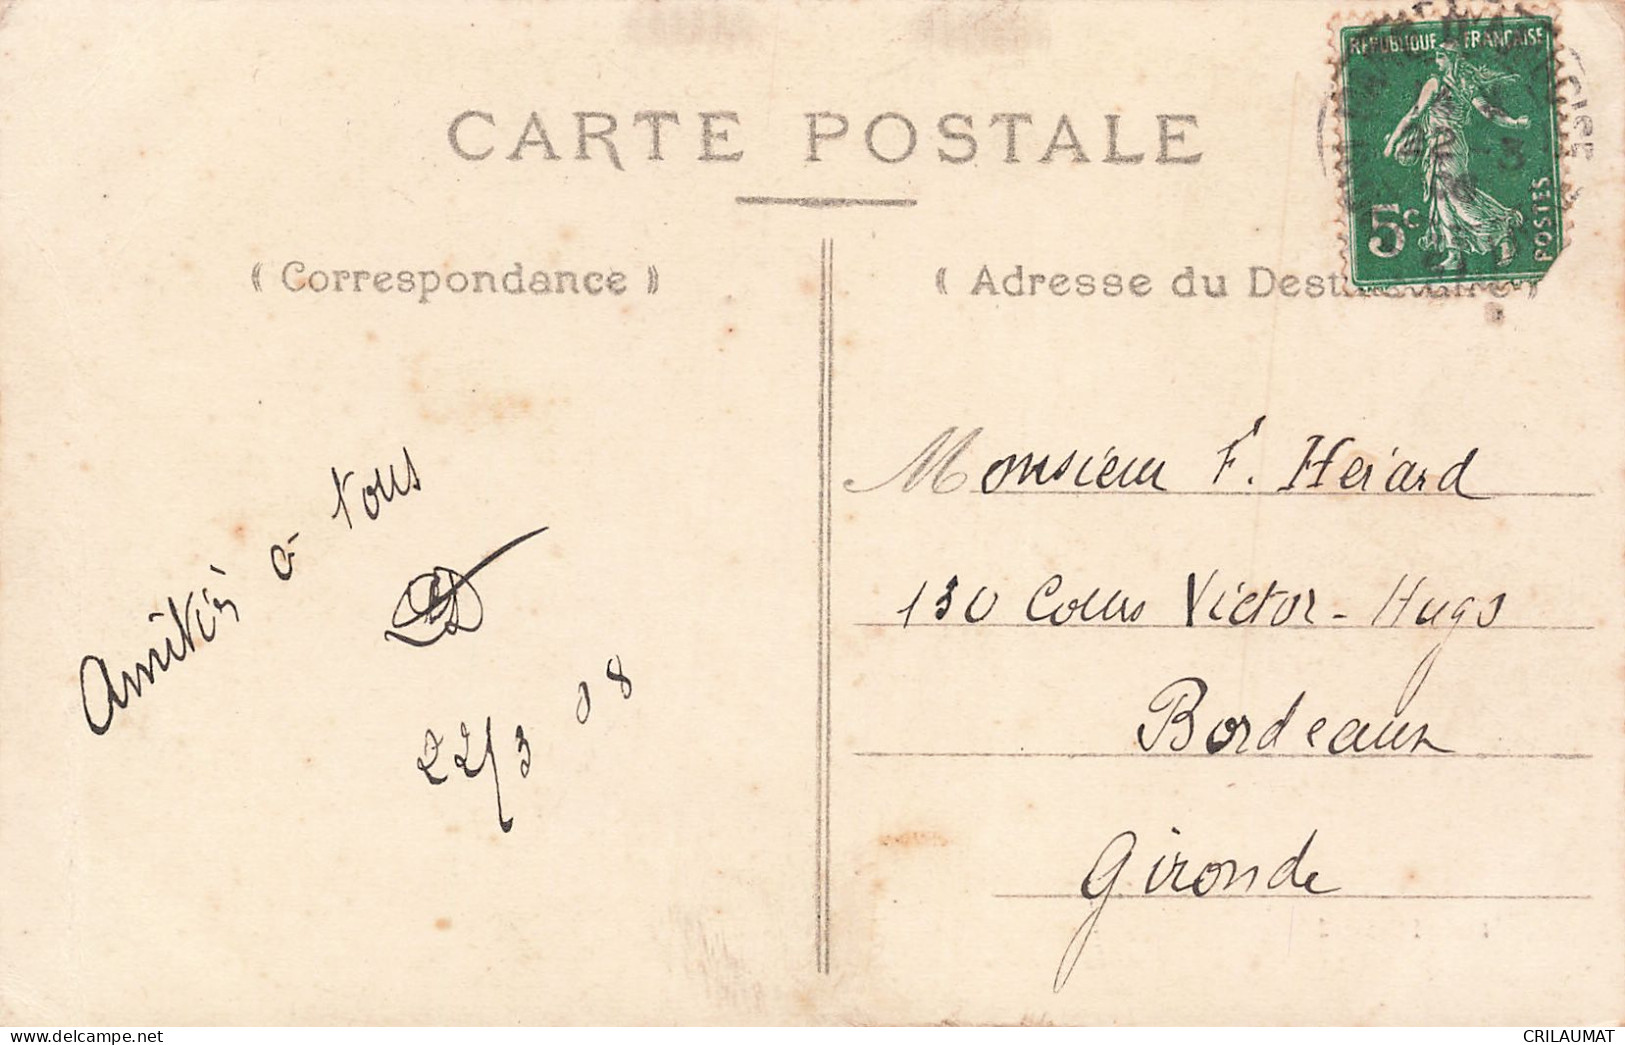 CARTE POSTALE
( Correspondance )
( Adresse du Destinataire )
RÉPUBLIQUE FRANÇAISE
5c
POSTES
22 - 3
Amitiés à tous
22/3 08
Monsieur F. Herard
130 Cours Victor-Hugo
Bordeaux
Gironde
delcampe.net
CRILAUMAT